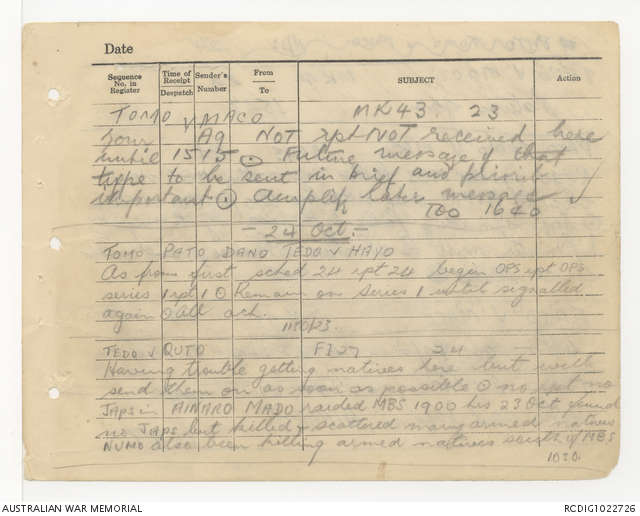 Date
Sequence No. in Register
Time of Receipt Despatch
Sender's Number
From To
SUBJECT
Action
TOMO V MACO MK43 23
Your A9 NOT rpt NOT received here
until 1515 ⊙ Future messages of that
type to be sent in brief and priority
important ⊙ amplify later message
TOO 1640
- 24 Oct. -
TOMO PATO DANO TEDO V HAYO
As from first sched 24 rpt 24 begin OPS rpt OPS
series 1 rpt 1 ⊙ Remain on series 1 until signalled
again ⊙ all ack.
1180/23.
TEDO V QUTO FI27 24
Having trouble getting natives here but will
send them on as soon as possible ⊙ no rpt no
JAPS in AINARO MADO raided MBS 1900 hrs 23 Oct found
no JAPS but killed & scattered many armed natives
NUMO also been killing armed natives south of MBS
1030.
AUSTRALIAN WAR MEMORIAL
RCDIG1022726